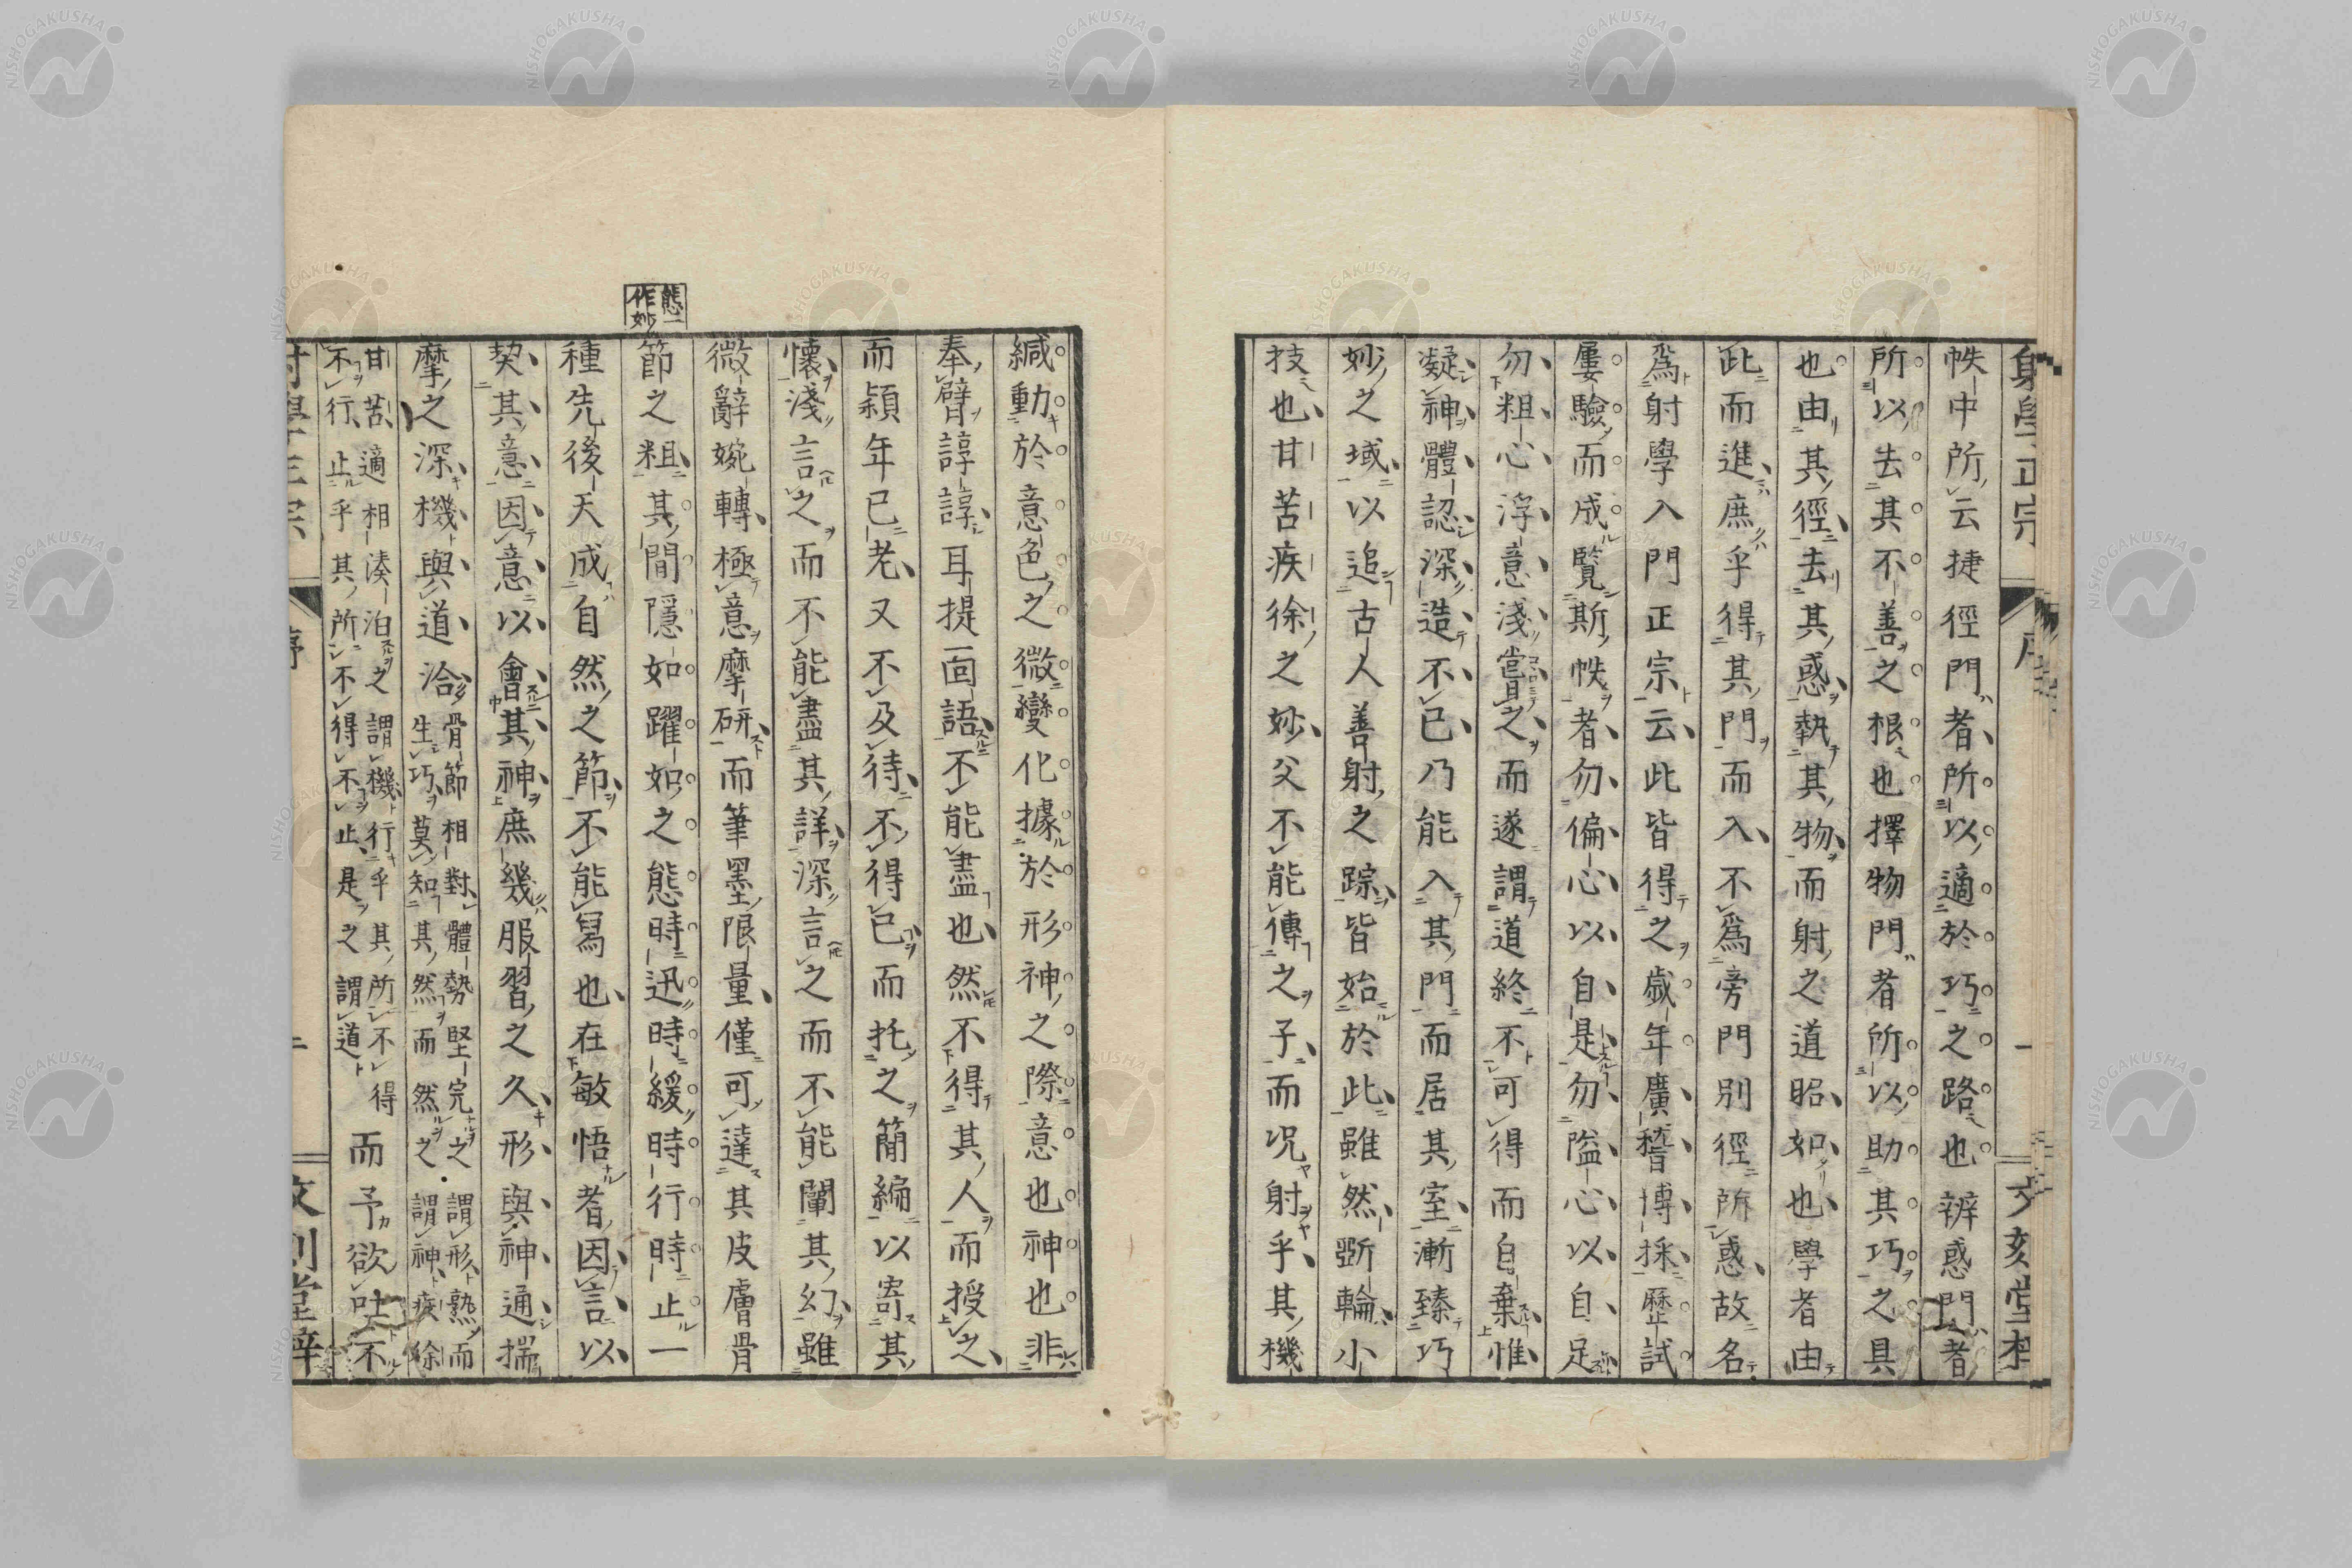 射學正宗 序 一 文刻堂梓
帙中所云捷徑門者所以適於巧之路也辨惑門者
所以去其不善之根也擇物門者所以助其巧之具
也由其徑去其惑執其物而射之道昭如也學者由
此而進庶乎得其門而入不爲旁門別徑所惑故名
爲射學入門正宗云此皆得之歲年廣稽博採歷試
屢驗而成覽斯帙者勿偏心以自是勿隘心以自足
勿粗心浮意淺嘗之而遂謂道終不可得而自棄惟
凝神體認深造不已乃能入其門而居其室漸臻巧
妙之域以追古人善射之踪皆始於此雖然斲輪小
技也甘苦疾徐之妙父不能傳之子而况射乎其機
緘動於意色之微變化據於形神之際意也神也非
奉臂諄諄耳提面語不能盡也然不得其人而授之
而穎年已老又不及待不得已而托之簡編以寄其
懷淺言之而不能盡其詳深言之而不能闡其幻雖
微辭婉轉極意摩研而筆墨限量僅可達其皮膚骨
態一作妙
節之粗其間隱如躍如之態時迅時緩時行時止一
種先後天成自然之節不能寫也在敏悟者因言以
契其意因意以會其神庶幾服習之久形與神通揣
摩之深機與道洽骨節相對體勢堅完之謂形熟而生巧莫知其然而然之謂神疾徐
甘苦適相湊泊之謂機行乎其所不得不行止乎其所不得不止是之謂道而予欲吐不
射學正宗 序 二 文刻堂梓